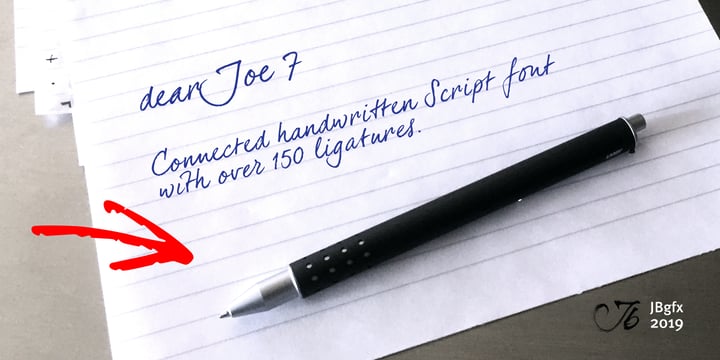 dear Joe 7
Connected handwritten Script font
with over 150 ligatures.
Jb
JBgfx
2019